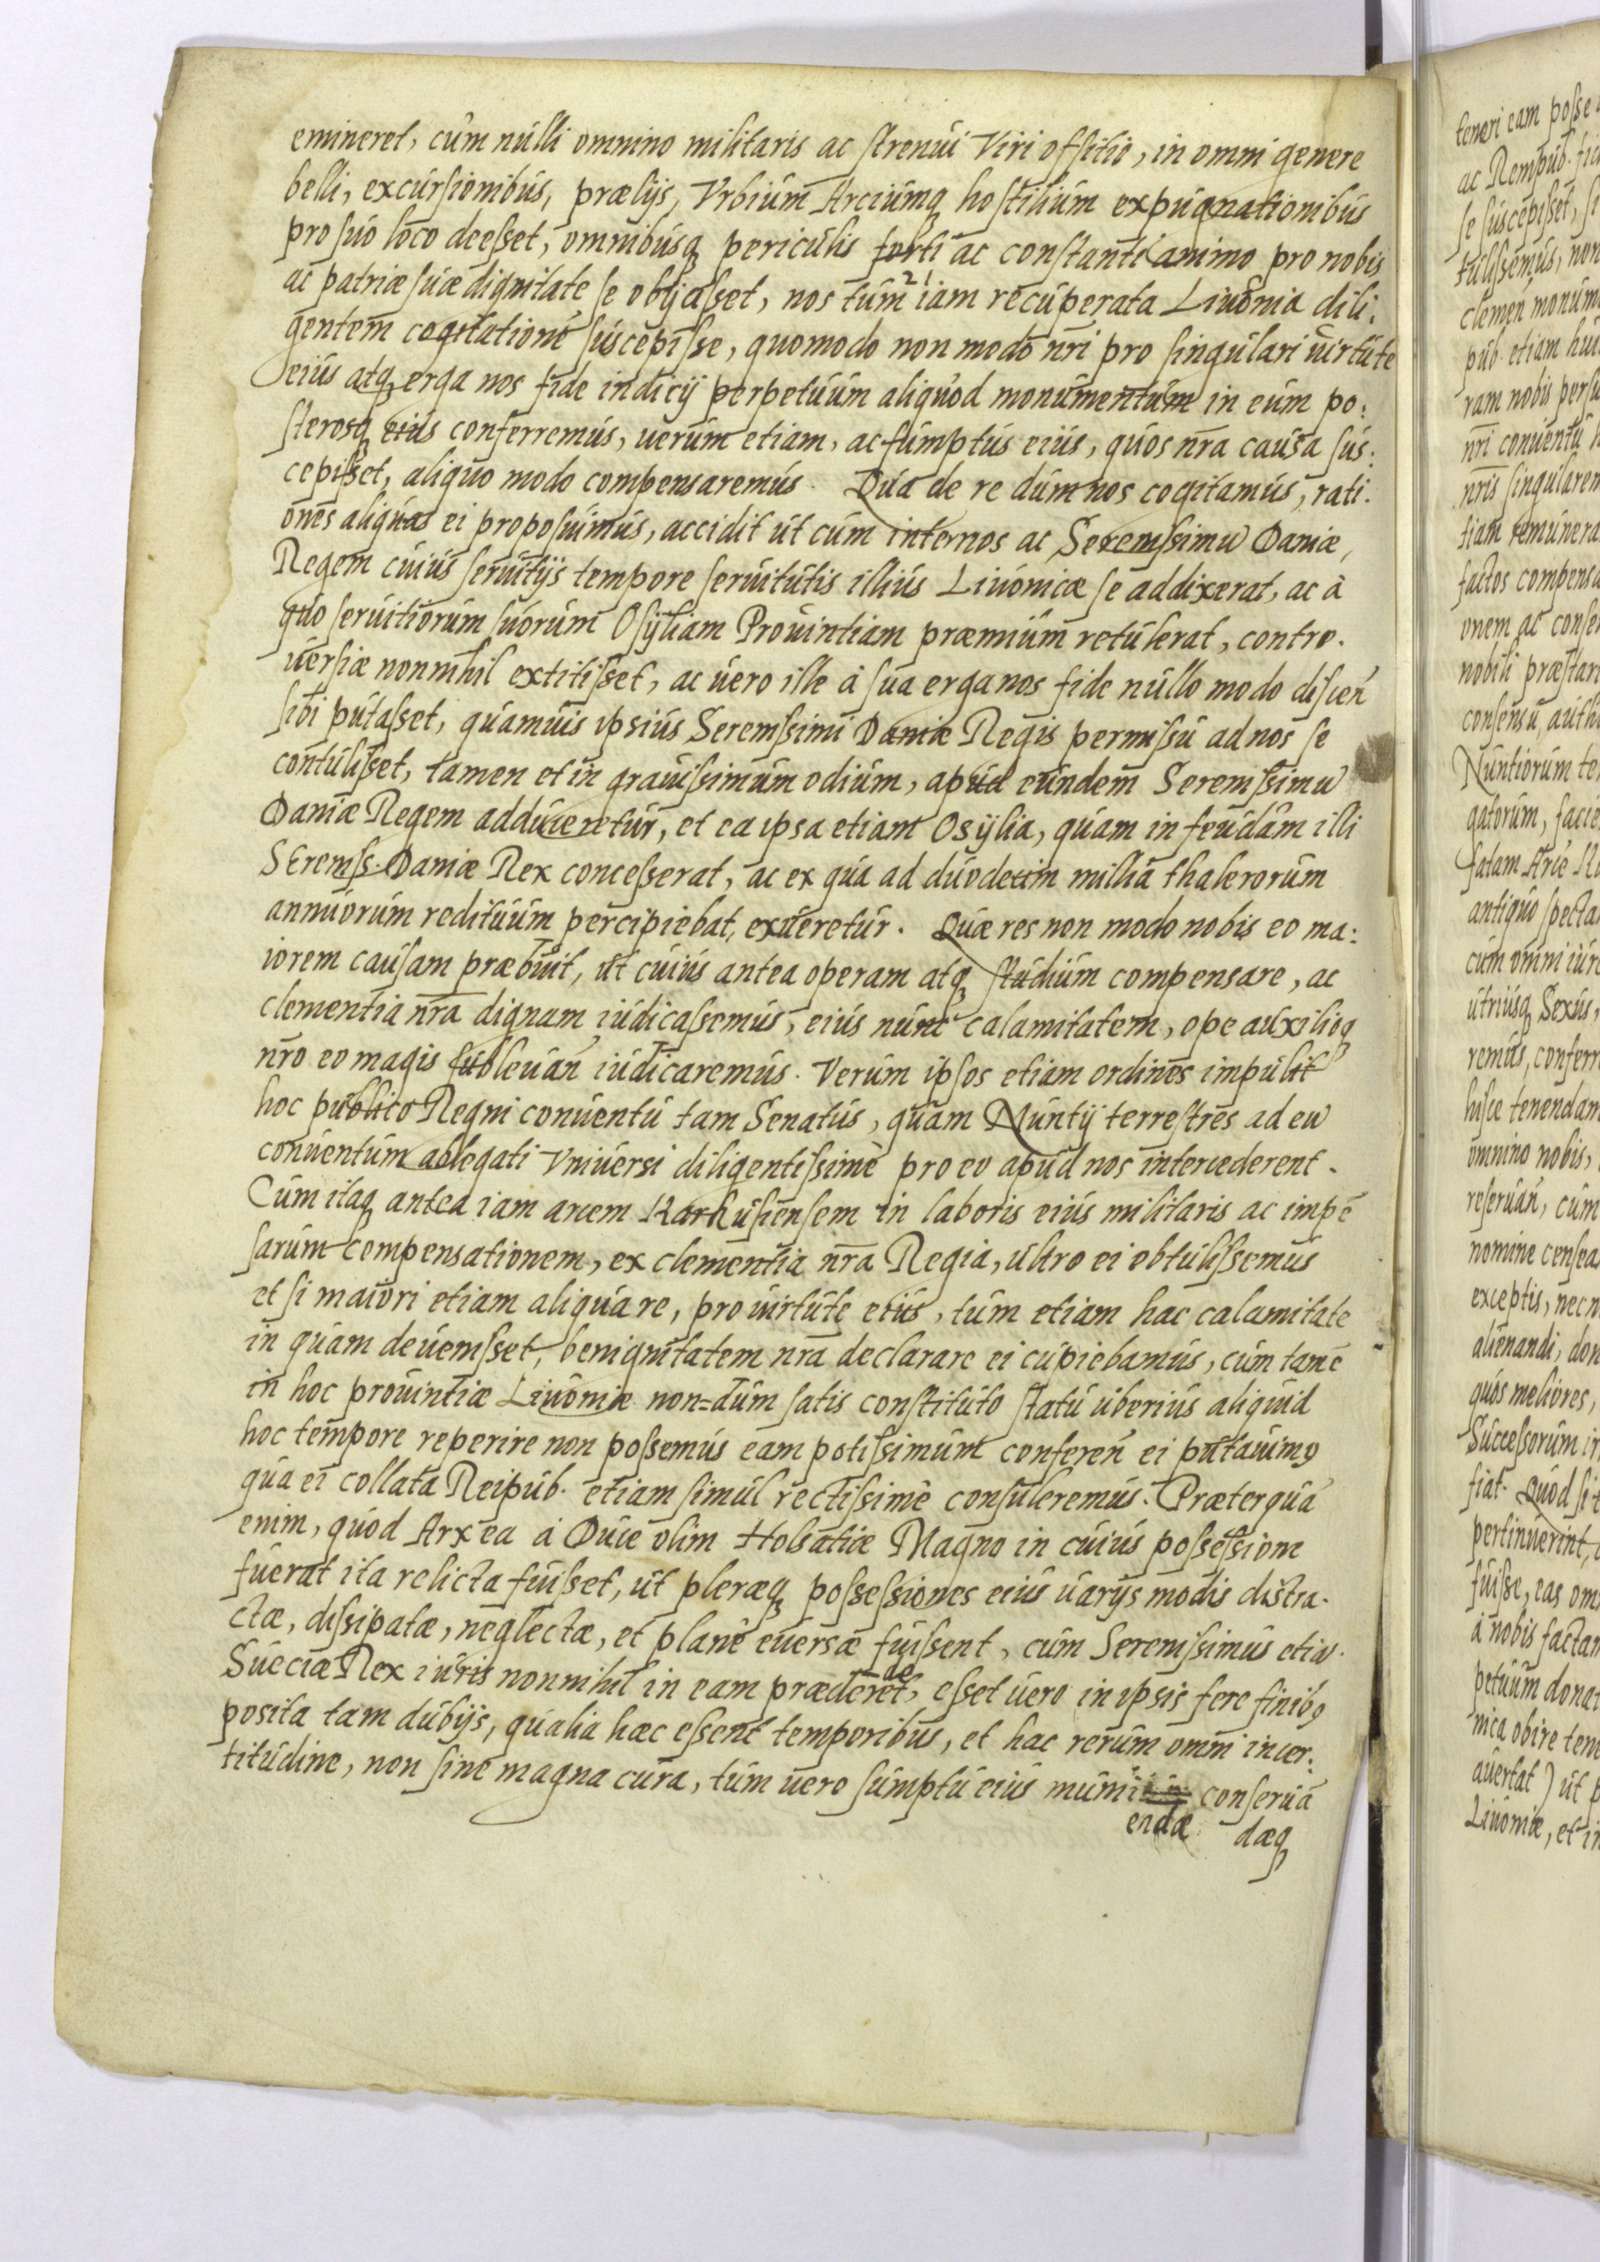 emineret, cùm nùlli omnino militaris ac strenùi Viri offitio, in omni genere
belli, excùrsionibùs, prælijs, Vrbiùm Arciùmq hostiliùm expùgnationibùs
pro sùo loco deesset, omnibùsq pericùlis forti ac constanti animo pro nobis
ac patriæ sùæ dignitate se obijcisset, nos tùm iam recùperata Liùonia dili:
gentem cogitationẽ sùscepisse, quomodo non modo nr̃i pro singùlari ùirtùte
eiùs atq erga nos fide indicij perpetùùm aliqùod monùmentùm in eùm po:
sterosq eiùs conferremùs, uerùm etiam, ac sùmptùs eiùs, qùos nr̃a caùsa sùs:
cepisset, aliqùo modo compensaremùs. Qùa de re dùm nos cogitamùs, rati:
ones aliqùas ei proposùimùs, accidit ùt cùm inter nos ac Serenissimũ Daniæ,
Regem cùiùs serùitijs tempore serùitùtis illiùs Liùonicæ se addixerat, ac à
qùo serùitiorùm sùorùm Osÿliam Proùintiam præmiùm retùlerat, contro:
ùersiæ nonnihil extitisset, ac ùero ille à sùa erga nos fide nùllo modo disceñ
sibi pùtasset, qùamùis ipsiùs Serenissimi Daniæ Regis permissù ad nos se
contùlisset, tamen et in graùissimùm odiùm, apùd eùndem Serenissimũ
Daniæ Regem addùceretùr, et ea ipsa etiam Osÿlia, qùam in feùdùm illi
Sereniss. Daniæ Rex concesserat, ac ex qùa ad dùodecim millia thalerorùm
annùorùm reditùùm percipiebat, exùeretùr. Qùæ res non modo nobis eo ma:
iorem caùsam præbùit, ùt cùiùs antea operam atq stùdiùm compensare, ac
clementia nr̃a dignam iùdicassemùs, eiùs nùnc calamitatem, ope aùxilioq
nr̃o eo magis sùbleùañ iùdicaremùs. Verùm ipsos etiam ordines impùlit
hoc pùblico Regni conùentù tam Senatùs, qùam Nùntij terrestres ad eũ
conùentùm ablegati Vniùersi diligentissimè pro eo apùd nos intercederent.
Cùm itaq antea iam arcem Karkùsiensem in laboris eiùs militaris ac impẽ
sarùm compensationem, ex clementia nr̃a Regia, ùltro ei obtùlissemùs
et si maiori etiam aliqùa re, pro ùirtùte eiùs, tùm etiam hac calamitate
in qùam deùenisset, benignitatem nr̃a declarare ei cùpiebamùs, cùm tamẽ
in hoc proùintiæ Liùoniæ non=dùm satis constitùto statù ùberiùs aliqùid
hoc tempore reperire non possemùs eam potissimùm conferen̄ ei pùtaùimꝯ
qùa ei collata Reipùb. etiam simùl rectissimè consùleremùs. Præterqùã
enim, qùòd Arx ea à Dùce olim Holsatiæ Magno in cùiùs possessione
fùerat ita relicta fùisset, ùt pleræq possessiones eiùs ùarijs modis distra:
ctæ, dissipatæ, neglectæ, et planè euersæ fùissent, cùm Serenissimùs etiã
Sùeciæ Rex iùris nonnihil in eam præderet, esset ùero in ipsis fere finibꝯ
posita tam dùbijs, qùalia hæc essent temporibus, et hac rerùm omni incer:
titùdine, non sine magna cùra, tùm uero sùmptù eiùs mùni conserùã
endæ dæq
teneri eam posse
ac Rempùb.
se sùscepisset,
tùlissemùs, non
clemen̄ monùm
pùb. etiam hùi
ram nobis persù
nr̃i conùentù
nr̃is singùlarem
tiam remùnera
factos compensa
onem ac conse
nobili præstan
consensù, aùth
Nùntiorùm te
gatorùm, facie
antiqùo specta
cùm omni iùre
ùtriùsq Sexùs,
remùs, conferr
hisce tenendam
omnino nobis,
reserùañ, cùm
nomine censea
exceptis, nec n
alienandi, don
qùos meliores,
Sùccessorùm in
fiat. Qùod si
pertinùerint,
fùisse, eas om
à nobis factam
petùùm donat
nica obire tene
aùertat) ùt p
Liùoniæ, et in